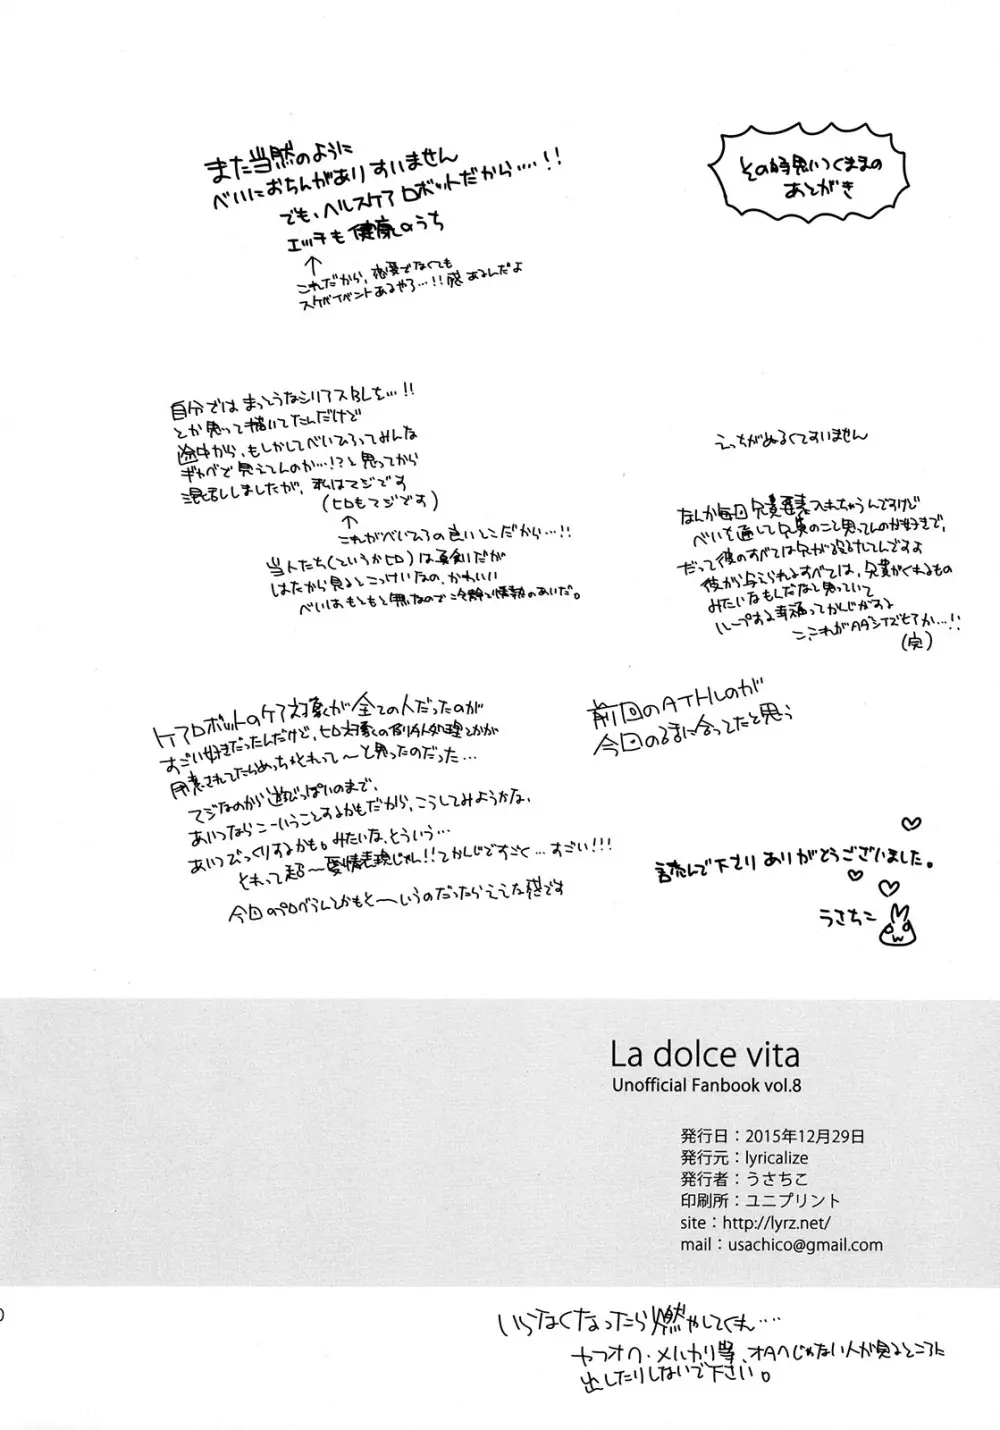 その時思いつくままの
あとがき
また当然のように
べいにおちんがありすいません
でも、ヘルスケアロボットだから・・・・!!
エッチも健康のうち
↑
これだから、恋愛でなくても
スケベイベントあるやろ…!!感あるんだよ
自分ではまっとうなシリアスBLを…!!
とか思って描いてたんだけど
途中から、もしかしてべいひろってみんな
ギャグで見えてんのか…!?と思ってから
混乱しましたが、私はマジです
(ヒロもマジです)
↑
これがべいひろの良いとこだから…!!
当人たち(というかヒロ)は真剣だが
はたから見るとこっけいなの、かわいい
べいはもともと無なので冷静と情熱のあいだ。
えっちがぬるくてすいません
なんか毎回兄貴要素入れちゃうんですけど
べいを通して兄貴のこと思ってんのが好きで、
だって彼のすべては兄が設けてんですよ
彼から与えられるすべては、兄貴がくれるもの
みたいなもんだなと思っていて
ループする幸福ってかんじがする
こ、これが
(完)
ケアロボットのケア対象が全ての人だったのが
すごい好きだったんだけど、ヒロ対象の個別処理とかが
用意されてたらめっちゃそれって〜と思ったのだった…
マジなのから遊びっぽいのまで、
あいつならこーいうことするかもだから、こうしてみようかな、
あいつびっくりするかも。みたいな、そういう…
それって超〜愛情表現じゃん!!てかんじですごく…すごい!!!
今回のプロぺらんとかもそーいうのだったらええな感です
前回のATHルのが
今回のるまに合ってたと思う
読んで下さりありがとうございました。
うさちこ
La dolce vita
Unofficial Fanbook vol.8
発行日：2015年12月29日
発行元：lyricalize
発行者：うさちこ
印刷所：ユニプリント
site：http://lyrz.net/
mail：usachico@gmail.com
0
いらなくなったら燃やしてくれ・・・・
ヤフオク・メルカリ等、オタクじゃない人が見るところに
出したりしないで下さい。